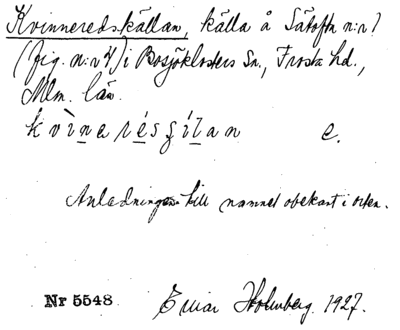 Kvinneredskällan, källa å Sätofta n:r 1
(fig. n:r 4) i Bosjöklosters Sn., Frosta hd.,
Mlm. län.
kvìnarésɟílan e.
Anledningen till namnet obekant i orten.
Nr 5548 Einar Holmberg. 1927.